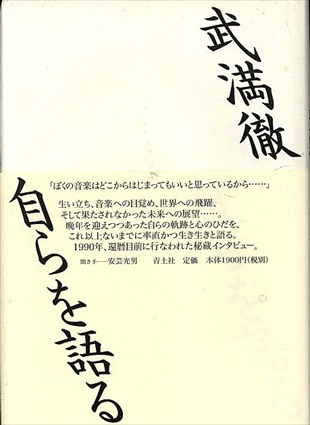 武満徹
自らを語る
「ぼくの音楽はどこからはじまってもいいと思っているから……」
生い立ち、音楽への目覚め、世界への飛躍、
そして果たされなかった未来への展望……。
晩年を迎えつつあった自らの軌跡と心のひだを、
これ以上ないまでに率直かつ生き生きと語る。
1990年、還暦目前に行なわれた秘蔵インタビュー。
聞き手──安芸光男 青土社 定価 本体1900円(税別)